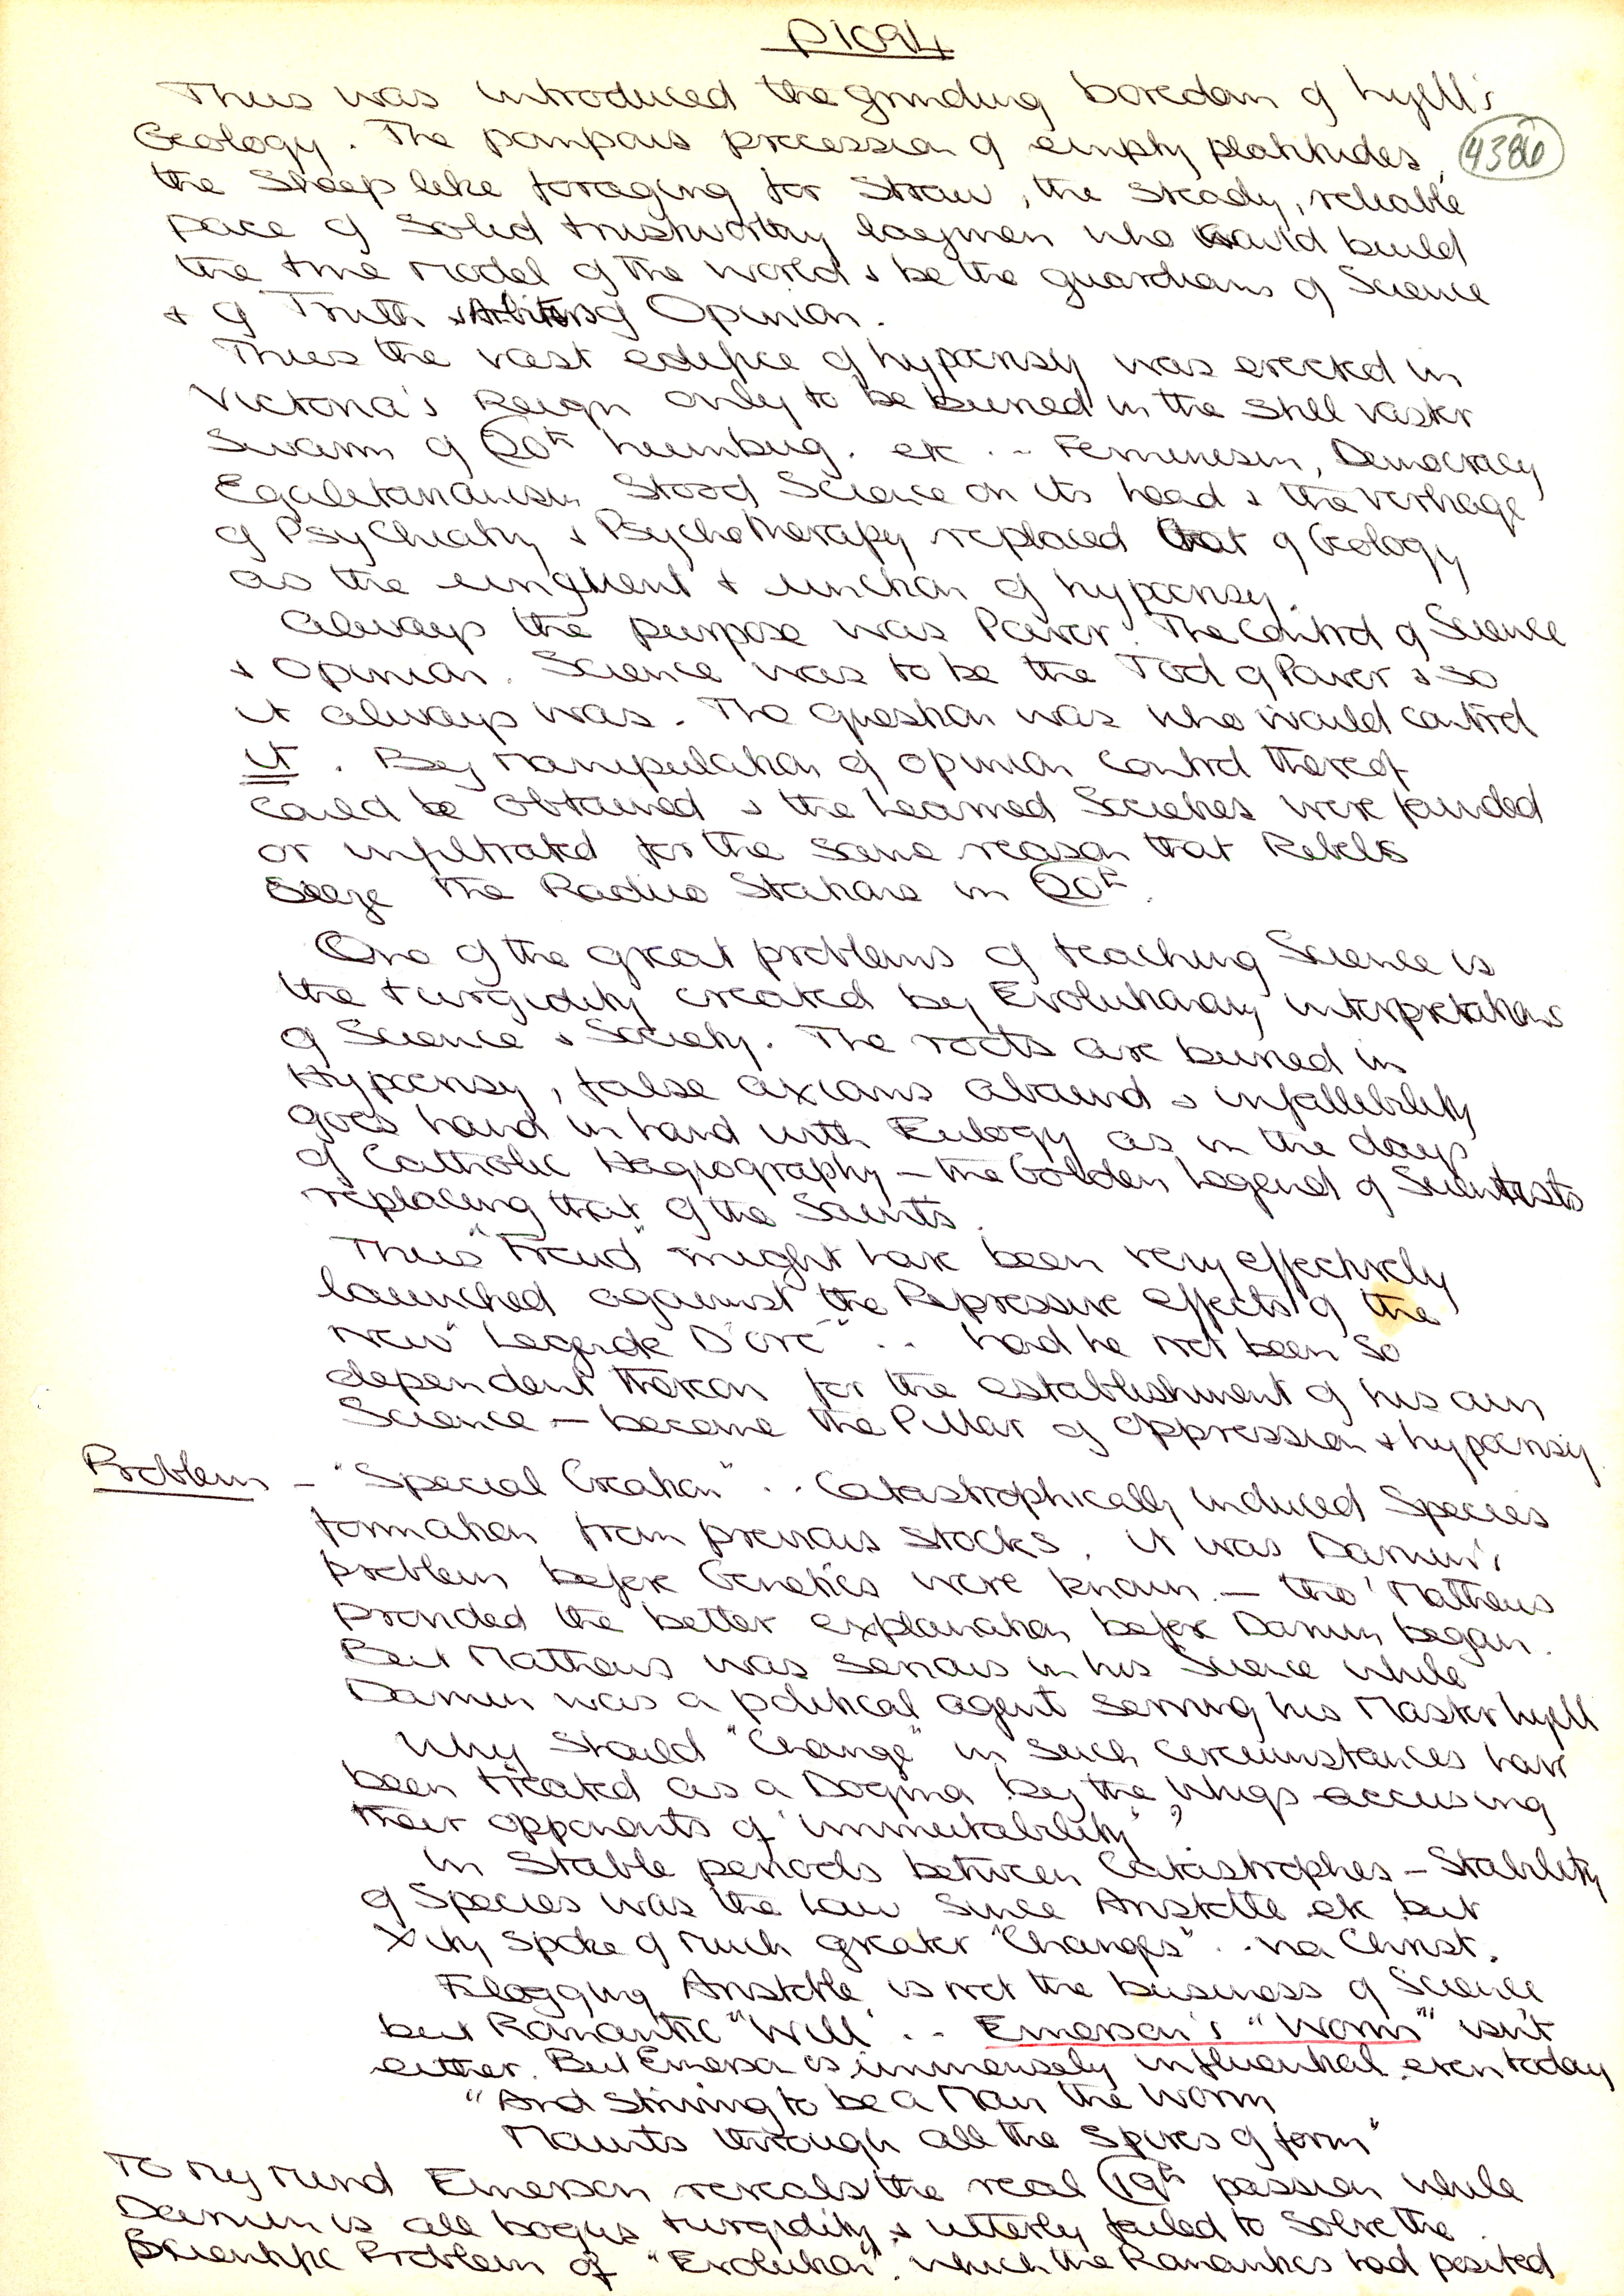 P1094
Thus was introduced the grinding boredom of Lyell's
Geology. The pompous procession of empty platitudes,
4386
the sheep like foraging for straw, the steady, reliable
pace of solid trustworthy laymen who would build
the true model of the world & be the guardians of Science
& of Truth & Arbiters of Opinion.
Thus the vast edifice of hypocrisy was erected in
Victoria's Reign only to be buried in the still vaster
Swarm of 20th humbug. etc .. Femenism, Democracy
Egalitarianism Stood Science on its head & the verbiage
of Psychiatry & PsychoTherapy replaced that of Geology
as the unguent & unction of hypocrisy.
Always the purpose was Power. The Control of Science
& Opinion. Science was to be the Tool of Power & so
it always was. The question was who would control
it. By Manipulation of opinion control thereof
could be obtained & the Learned Societies were founded
or infiltrated for the same reason that Rebels
Seize the Radio Stations in 20th.
One of the great problems of teaching Science is
the turgidity created by Evolutionary interpretations
of Science & Society. The roots are buried in
Hypocrisy, false axioms abound & infallibility
goes hand in hand with Eulogy as in the days
of Catholic Hagiography – the Golden Legend of Scientists
replacing that of the Saints.
Thus "Freud" might have been very effectively
launched against the Repressive effects of the
new "Legende D'ore" .. had he not been so
dependent thereon for the establishment of his own
Science – became the Pillar of Oppression & hypocrisy.
Problem – "Special Creation" .. Catastrophically induced Species
formation from previous stocks. it was Darwin's
problem before Genetics were known – tho' Mathews
provided the better explanation before Darwin began.
But Mathews was serious in his Science while
Darwin was a political agent serving his Master Lyell
Why should "Change" in such circumstances have
been treated as a Dogma by the Whigs accusing
their opponents of "immutability"?
In Stable periods between Catastrophes – Stability
of Species was the Law since Aristotle etc but
Xity spoke of much greater "Changes" .. via Christ.
Flogging Aristotle is not the business of Science
but Romantic "Will" .. Emerson's "Worm" isn't
either. But Emerson is immensely influential even today
"And striving to be a Man the worm
Mounts through all the spires of form"
To my mind Emerson reveals the real 19th passion while
Darwin is all bogus turgidity & utterly failed to solve the
Scientific Problem of "Evolution". which the Romantics had posited